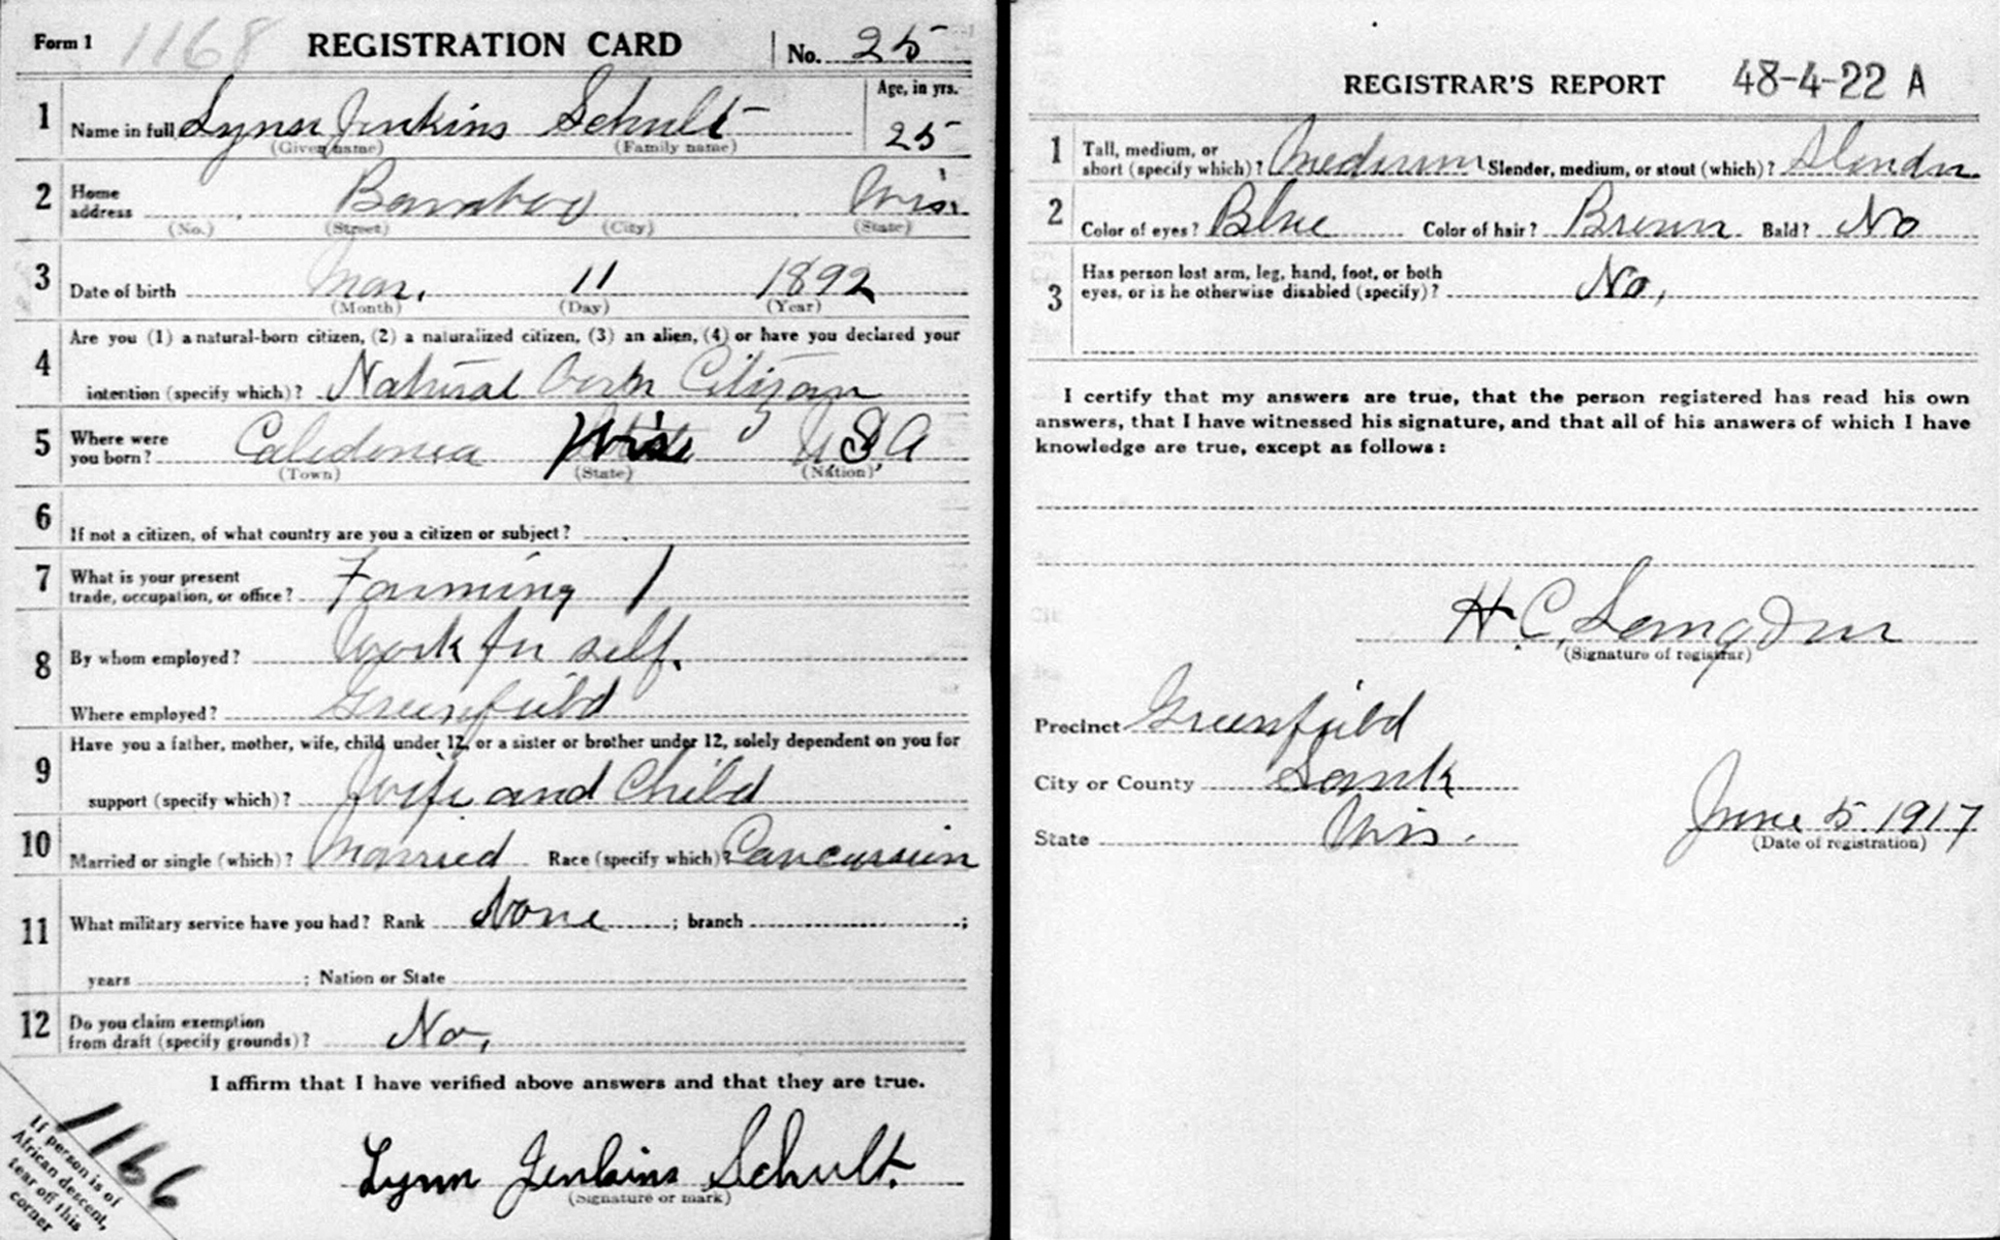 Form 1 1168 REGISTRATION CARD No. 25
1 Name in full Lynn Jenkins Schult Age, in yrs.
(Given name) (Family name) 25
2 Home address Baraboo Wis.
(No.) (Street) (City) (State)
3 Date of birth Mar. 11 1892
(Month) (Day) (Year)
4 Are you (1) a natural-born citizen, (2) a naturalized citizen, (3) an alien, (4) or have you declared your
intention (specify which)? Natural born Citizen
5 Where were you born? Caledonia Wis U.S.A
(Town) (State) (Nation)
6 If not a citizen, of what country are you a citizen or subject?
7 What is your present
trade, occupation, or office? Farming /
8 By whom employed? Work for self.
Where employed? Greenfield
9 Have you a father, mother, wife, child under 12, or a sister or brother under 12, solely dependent on you for
support (specify which)? Wife and Child
10 Married or single (which)? Married Race (specify which)? Caucussien
11 What military service have you had? Rank None ; branch ;
years ; Nation or State
12 Do you claim exemption
from draft (specify grounds)? No,
I affirm that I have verified above answers and that they are true.
Lynn Jenkins Schult.
(Signature or mark)
1166
If person is of
African descent,
tear off this
corner
REGISTRAR'S REPORT 48-4-22 A
1 Tall, medium, or
short (specify which)? Medium Slender, medium, or stout (which)? Slender
2 Color of eyes? Blue Color of hair? Brown Bald? No
3 Has person lost arm, leg, hand, foot, or both
eyes, or is he otherwise disabled (specify)? No,
I certify that my answers are true, that the person registered has read his own
answers, that I have witnessed his signature, and that all of his answers of which I have
knowledge are true, except as follows:
H. C. Langdon
(Signature of registrar)
Precinct Greenfield
City or County Sauk
State Wis. June 5. 1917
(Date of registration)